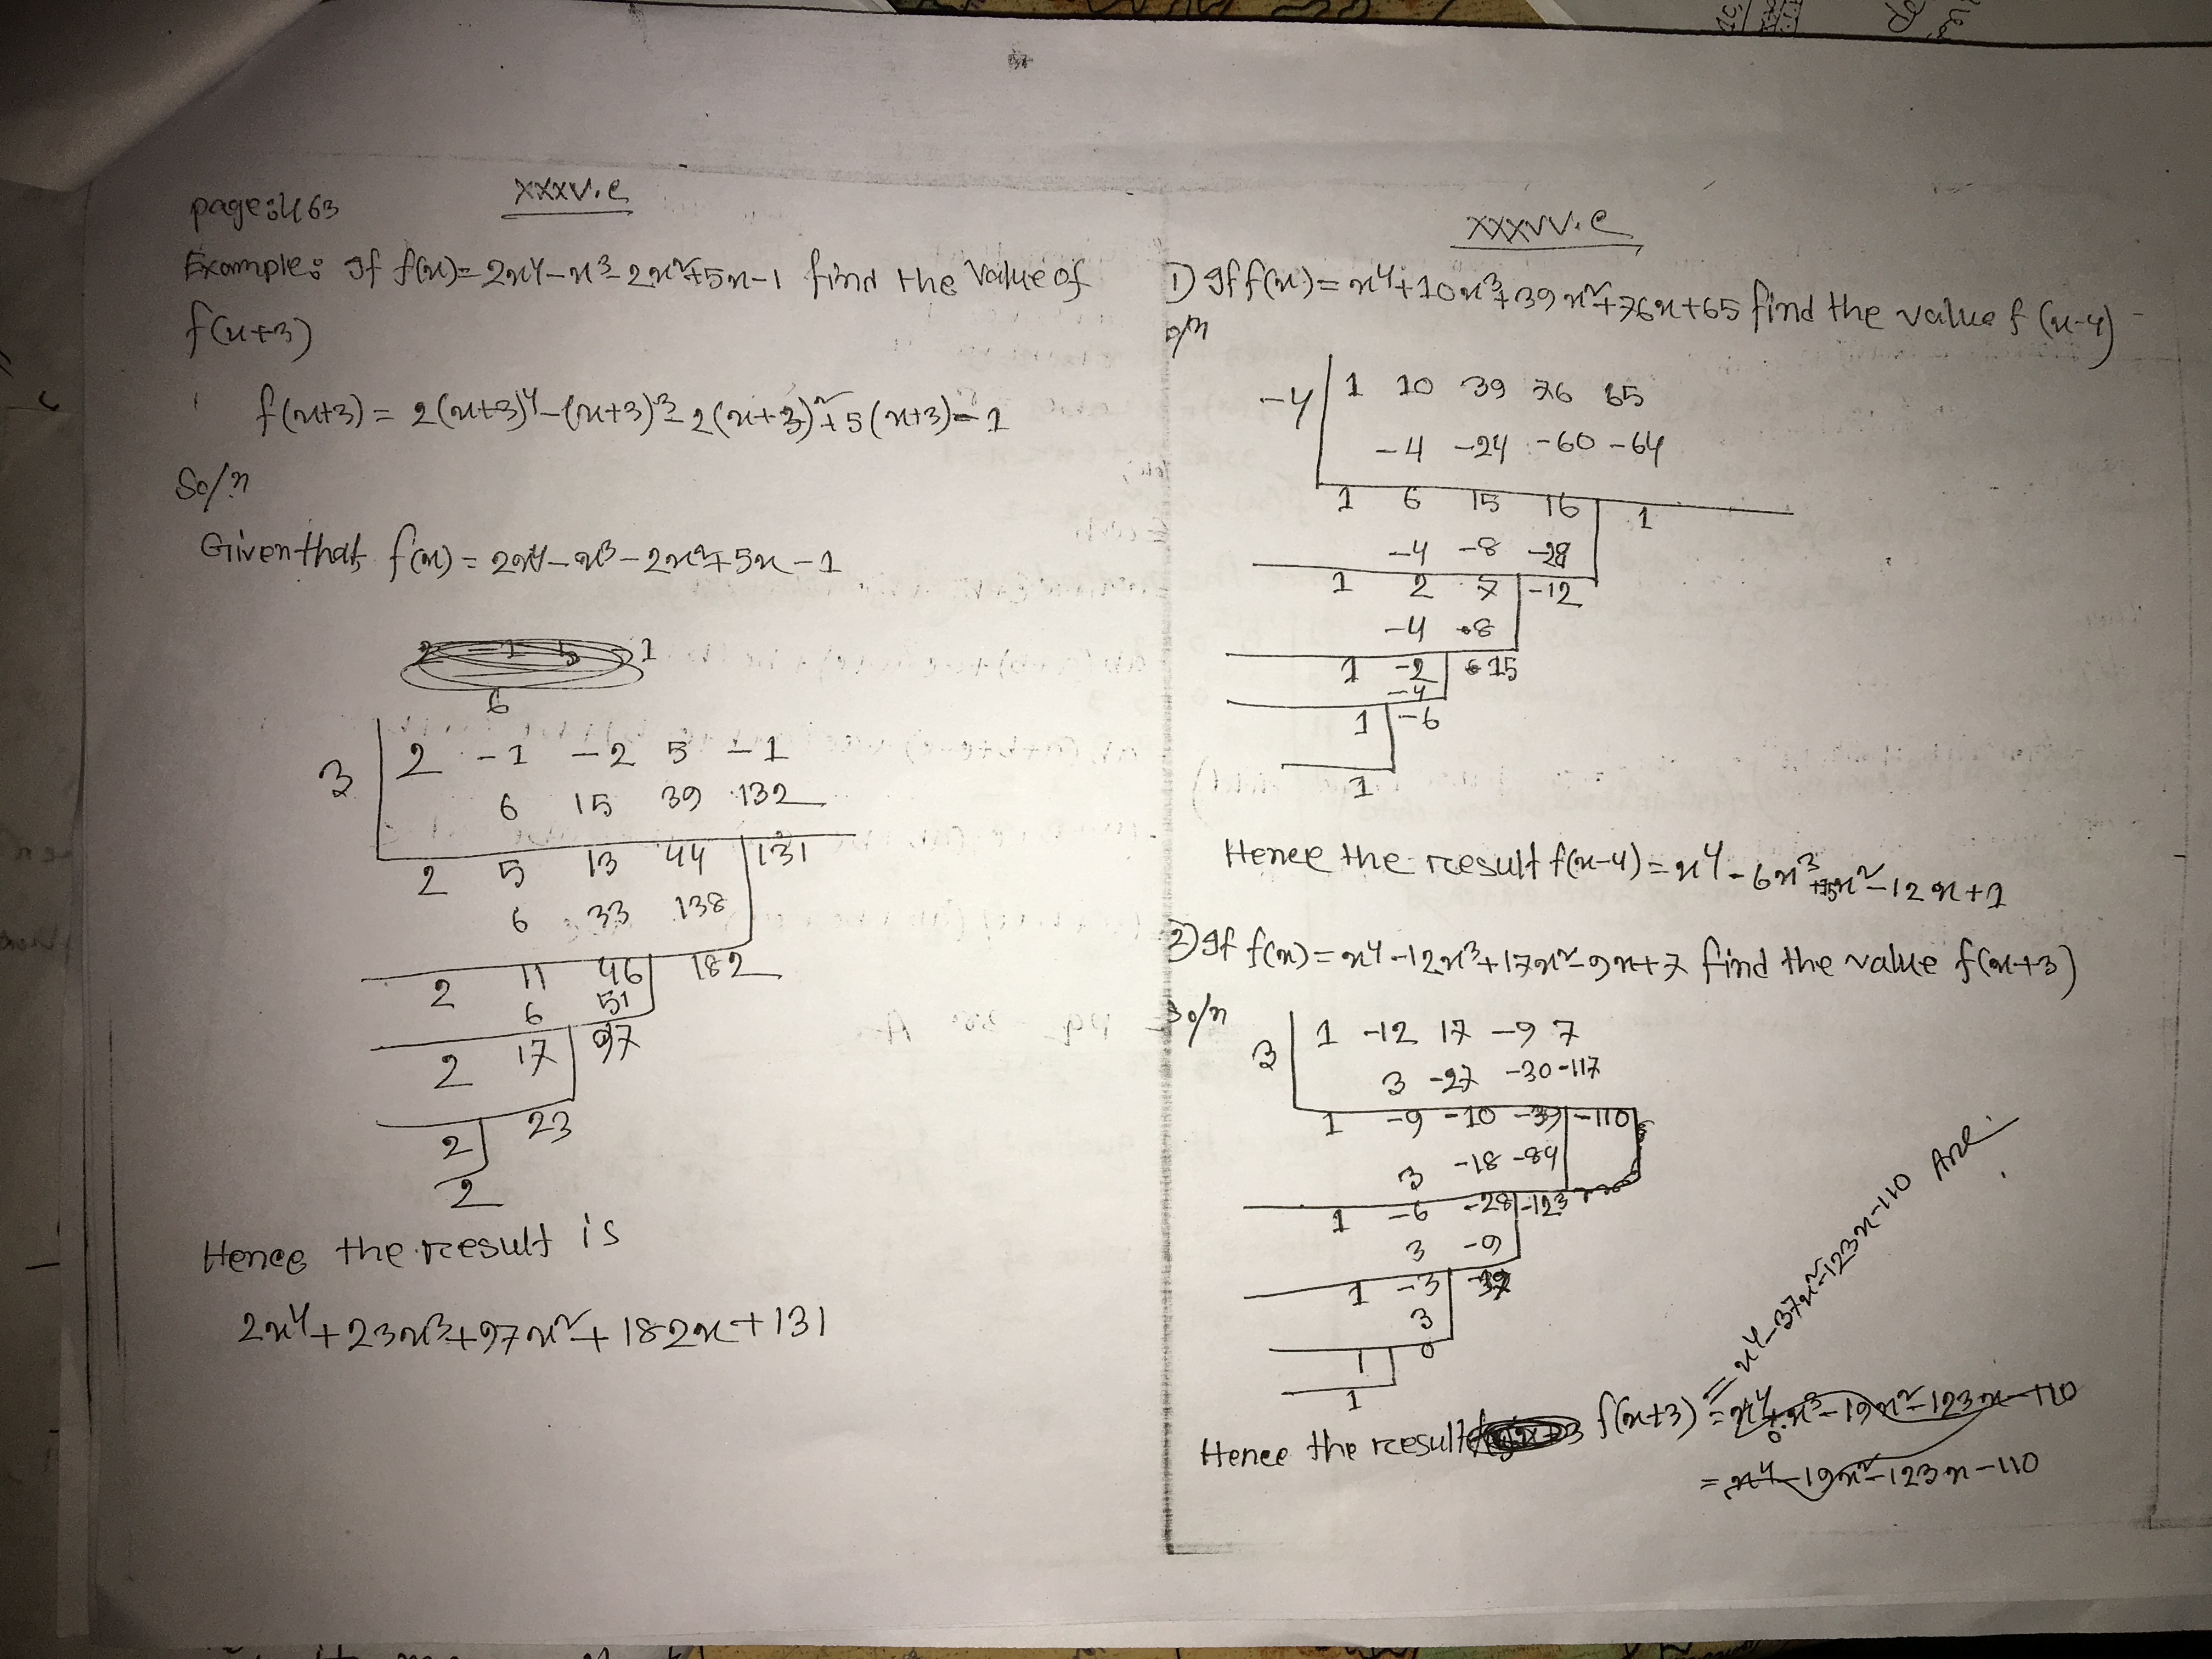 page: 463
xxxv.e
Example: If f(x)=2x⁴-x³-2x²+5x-1 find the value of
f(x+3)
f(x+3) = 2(x+3)⁴-(x+3)³-2(x+3)²+5(x+3)-1
So/n
Given that, f(x) = 2x⁴-x³-2x²+5x-1
6
3 2 -1 -2 5 -1
6 15 39 132
2 5 13 44 131
6 33 138
2 11 46 182
6 51
2 17 97
2 23
2
Hence the result is
2x⁴+23x³+97x²+182x+131
xxxvv.e
1) If f(x) = x⁴+10x³+39x²+76x+65 find the value f (x-4)
-4 1 10 39 76 65
-4 -24 -60 -64
1 6 15 16 1
-4 -8 -28
1 2 7 -12
-4 8
1 -2 15
-4
1 -6
1
Hence the result f(x-4) = x⁴-6x³+15x²-12x+1
2) If f(x) = x⁴-12x³+17x²-9x+7 find the value f(x+3)
So/n
3 1 -12 17 -9 7
3 -27 -30 -117
1 -9 -10 -39 -110
3 -18 -84
1 -6 -28 -123
3 -9
1 -3 -37
3
1 0
1
Hence the result f(x+3) = x⁴+0.x³-19x²-123x-110
= x⁴-19x²-123x-110
= x⁴-37x²-123x-110 Ans.